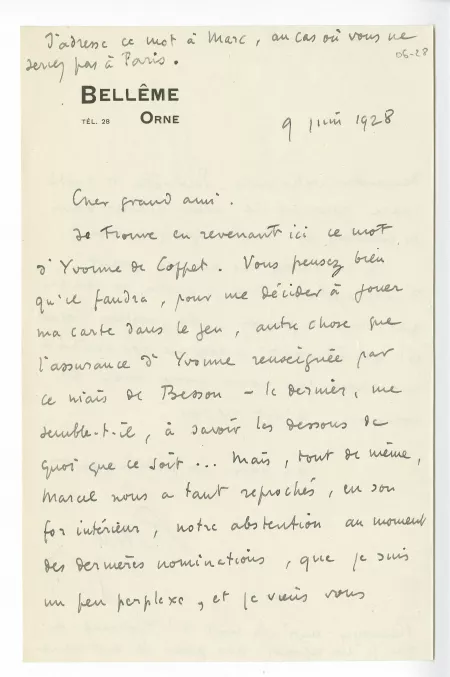 J'adresse ce mot à Marc, au cas où vous ne
seriez pas à Paris.
06-28
BELLÊME
TÉL. 28 ORNE
9 juin 1928
Cher grand ami.
Je trouve en revenant ici ce mot
d'Yvonne de Coppet. Vous pensez bien
qu'il faudra, pour me décider à jouer
ma carte dans le jeu, autre chose que
l'assurance d'Yvonne renseignée par
ce niais de Besson – le dernier, me
semble-t-il, à savoir les dessous de
quoi que ce soit... Mais, tout de même,
Marcel nous a tant reprochés, en son
for intérieur, notre abstention au moment
des dernières nominations, que je suis
un peu perplexe, et je viens vous